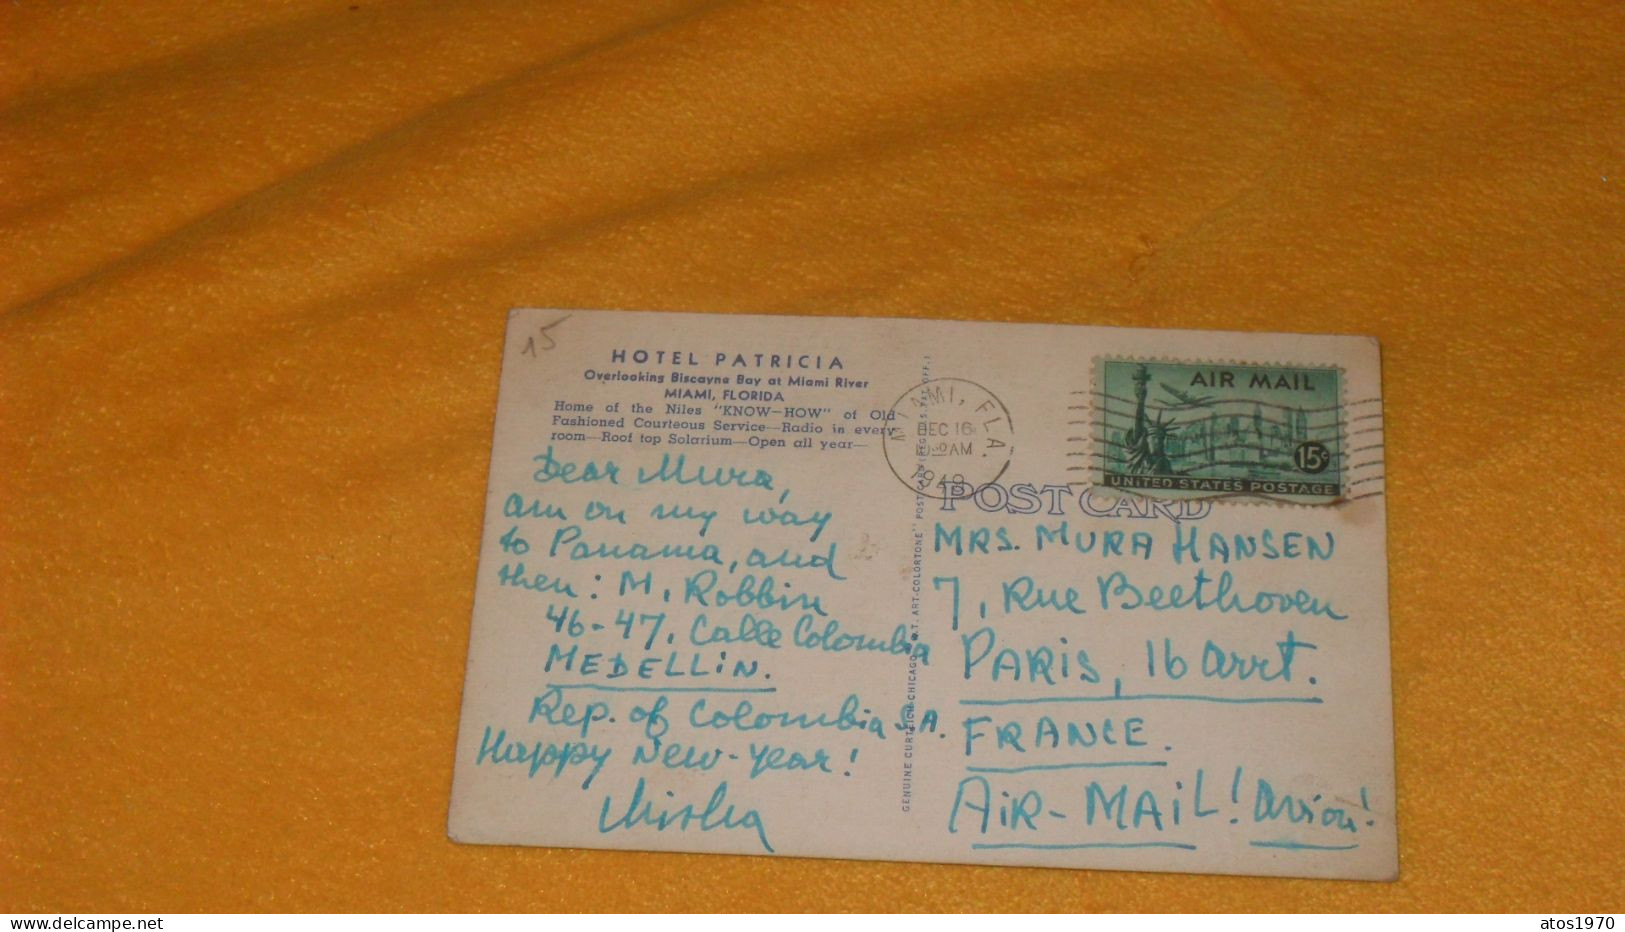 15
HOTEL PATRICIA
Overlooking Biscayne Bay at Miami River
MIAMI, FLORIDA
Home of the Niles "KNOW-HOW" of Old
Fashioned Courteous Service—Radio in every
room—Roof top Solarium—Open all year—
Dear Mura,
am on my way
to Panama, and
then: M. Robbin
46-47, Calle Colombia
MEDELLIN.
Rep. of Colombia S.A.
Happy New-Year!
Misha
GENUINE CURTEICH-CHICAGO "C.T. ART-COLORTONE" POST CARD (REG. U.S. PAT. OFF.)
MIAMI, FLA.
DEC 16
AM
1949
AIR MAIL
15¢
UNITED STATES POSTAGE
POST CARD
MRS. MURA HANSEN
7, Rue Beethoven
PARIS, 16 arrt.
FRANCE.
AIR-MAIL! Avion!
atos1970